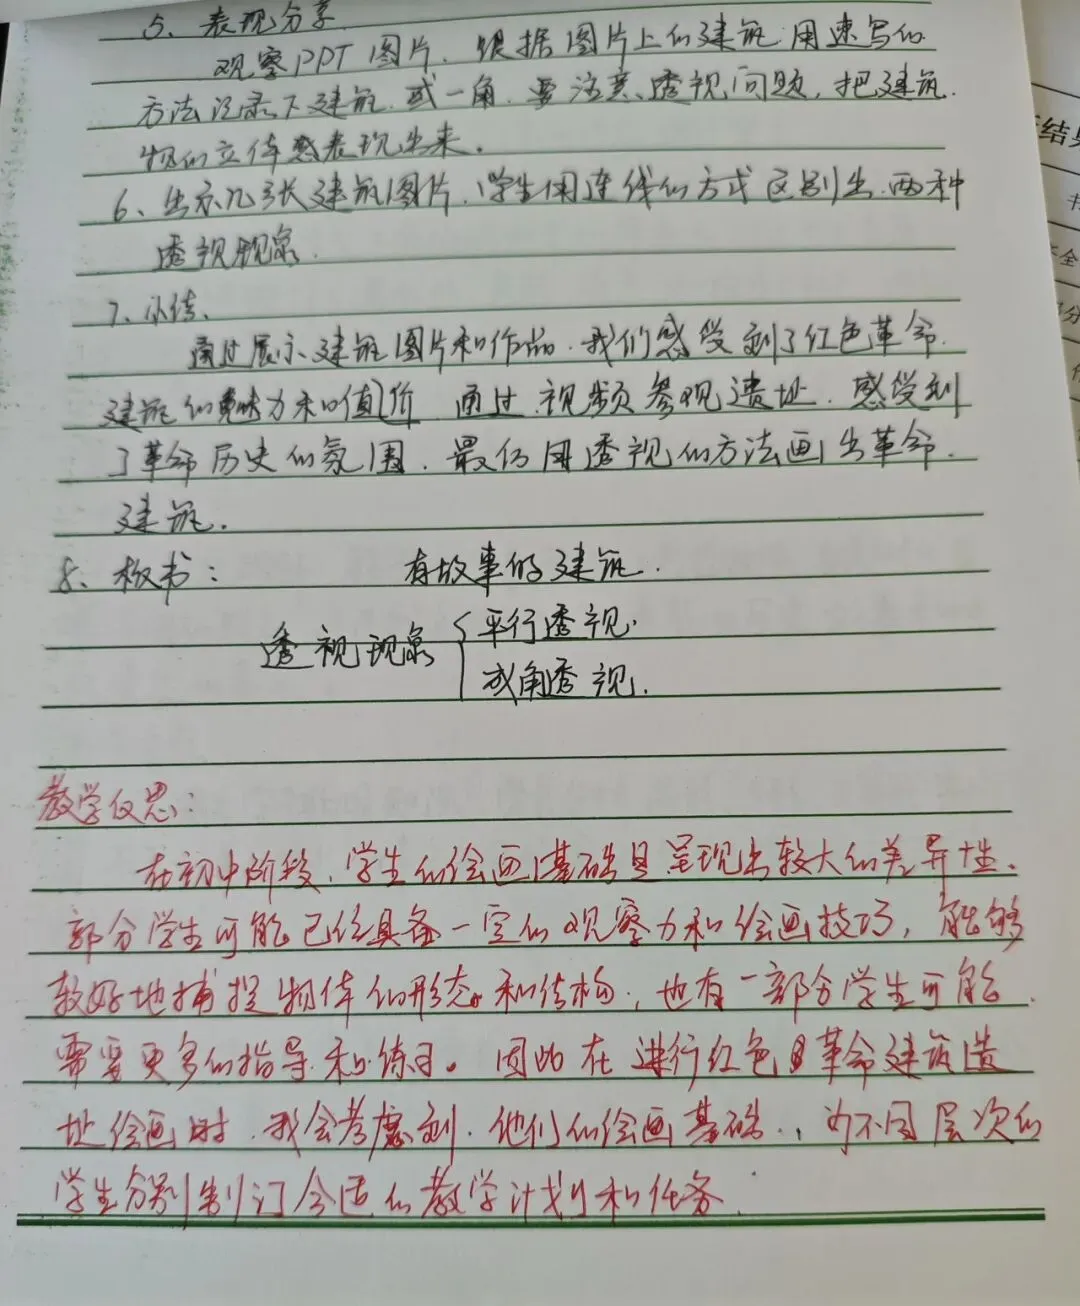 5、表现分享
观察PPT图片,根据图片上的建筑用速写的
方法记录下建筑,或一角,要注意透视问题,把建筑
物的立体感表现出来。
6、出示几张建筑图片,学生用连线的方式区别出两种
透视现象.
7、小结、
通过展示建筑图片和作品,我们感受到了红色革命
建筑的魅力和价值 通过视频参观遗址,感受到
了革命历史的氛围,最后用透视的方法画出革命
建筑.
8、板书: 有故事的建筑.
透视现象 { 平行透视.
成角透视.
教学反思:
在初中阶段,学生的绘画基础呈现出较大的差异性、
部分学生可能已经具备一定的观察力和绘画技巧,能够
较好地捕捉物体的形态和结构,也有一部分学生可能
需要更多的指导和练习。因此在进行红色革命建筑遗
址绘画时,我会考虑到他们的绘画基础,为不同层次的
学生分别制订合适的教学计划和任务.
结
书
全
分